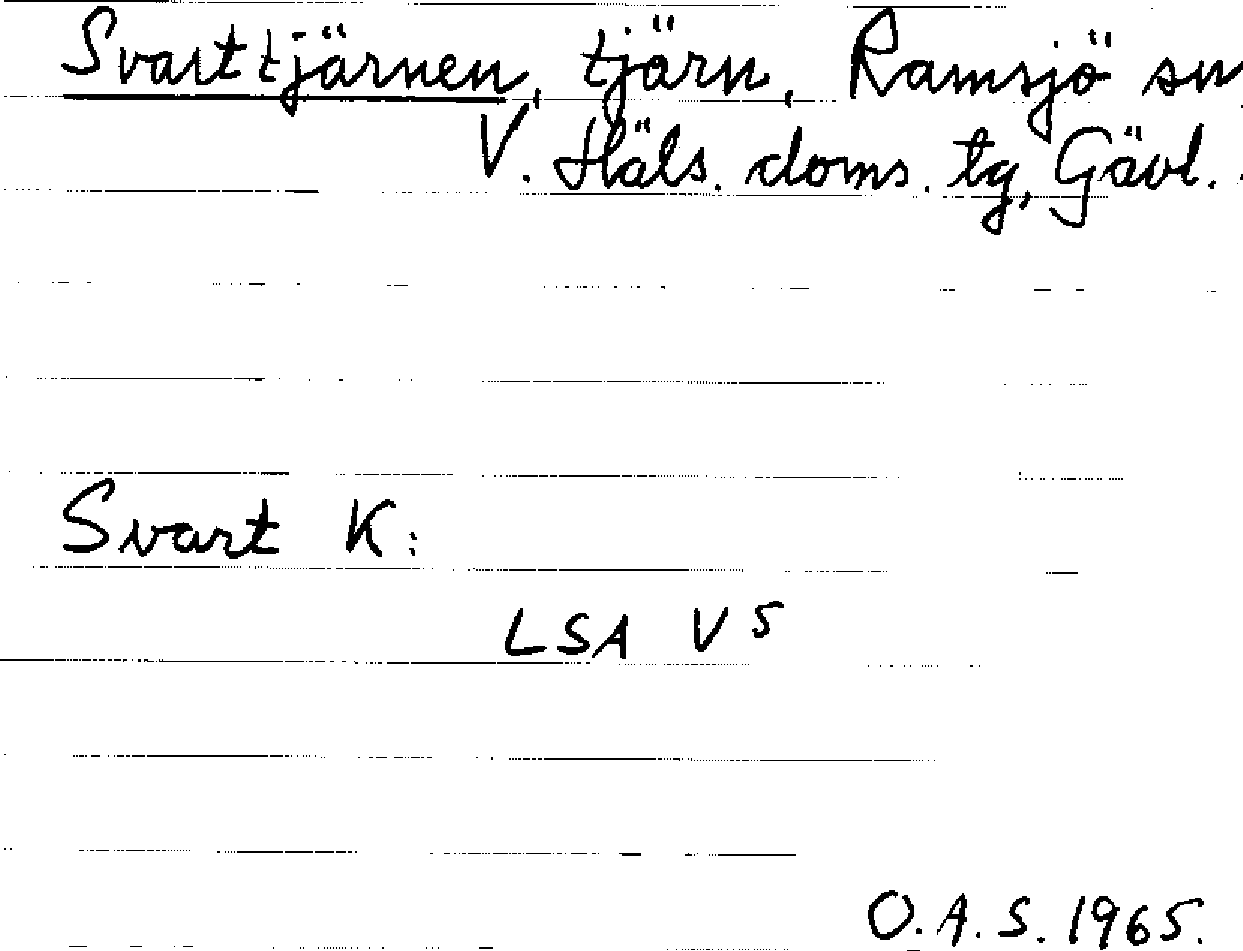 Svarttjärnen, tjärn, Ramsjö sn
V. Häls. doms. tg, Gävl.
Svart K:
LSA V5
O.A.S. 1965.